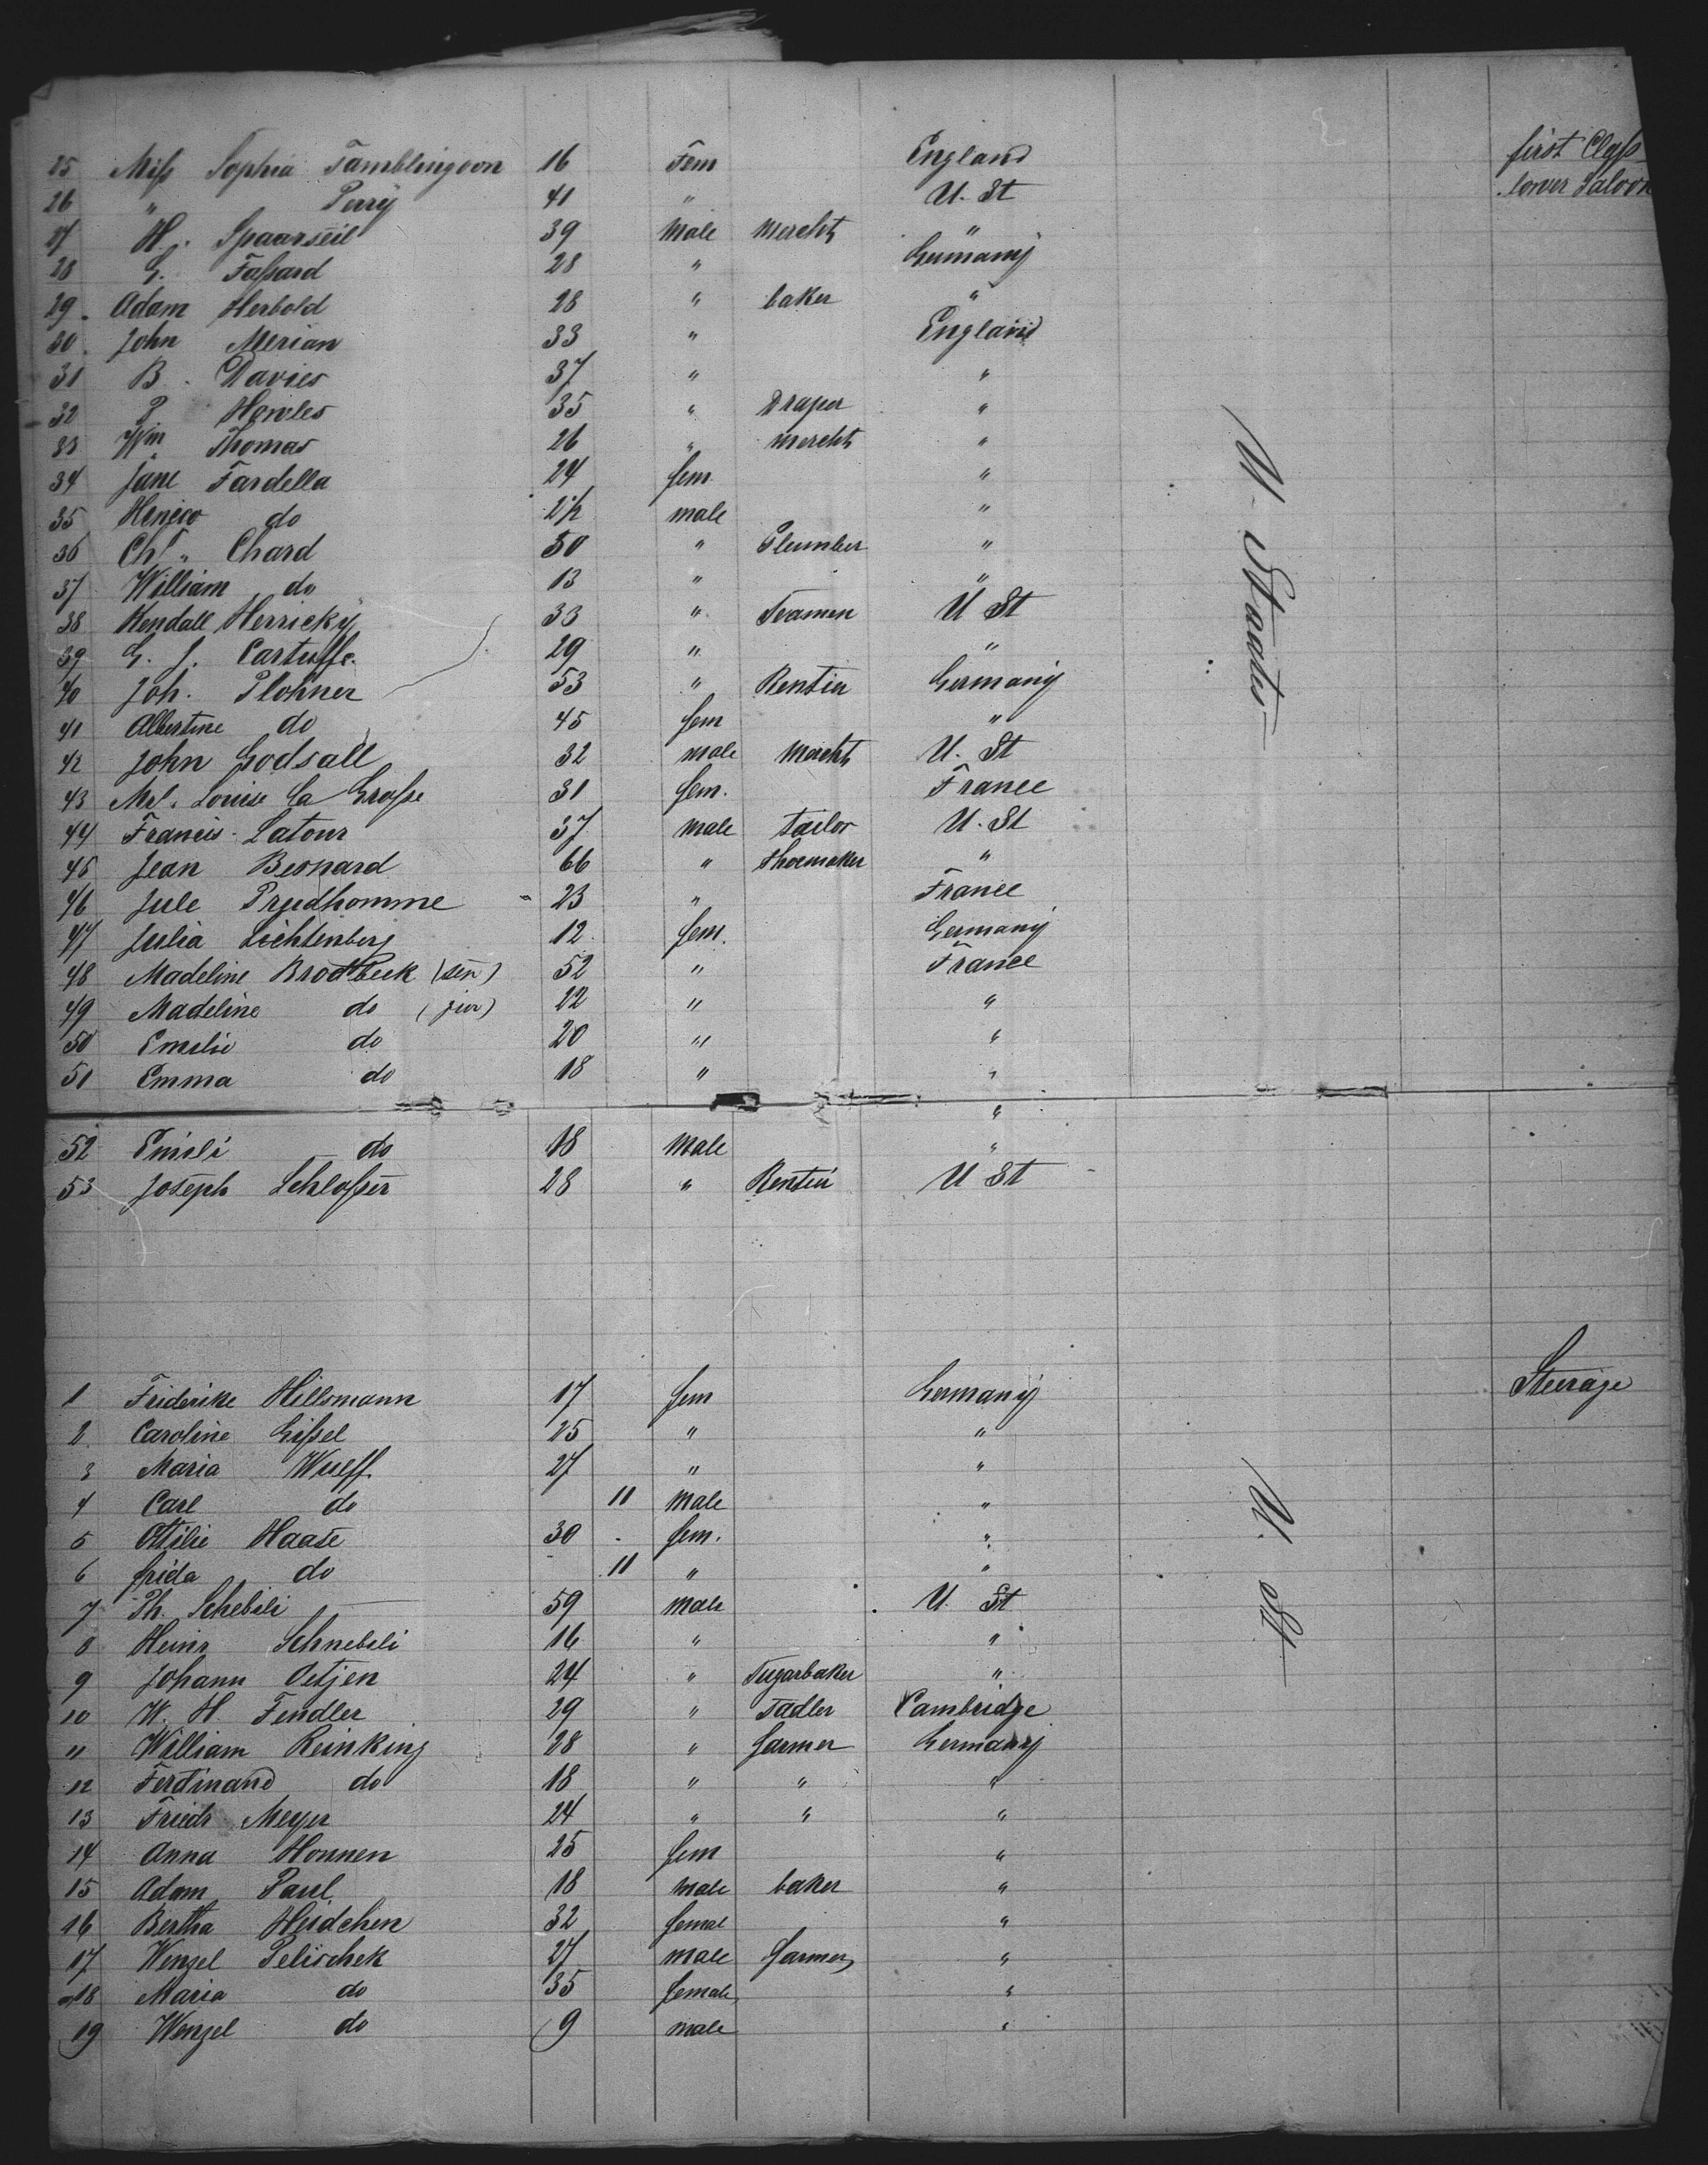 25 Miss Sophia Tamblingson 16 Fem England first Class
26 " Perry 41 " U. St lower Saloon
27 H. Spaarseil 39 Male Mercht "
28 G. Fassard 28 " Germany
29. Adam Herbold 28 " baker "
30. John Merian 33 " England
31 B. Davies 37 " "
32 P Howles 35 " Draper "
33 Wm Thomas 26 " mercht "
34 Jane Fardella 24 fem "
35 do 2 1/2 male "
36 Chs. Chard 50 " Plumber "
37 William do 13 " "
38 Kendall Herricky 33 " Seamen U St
39 G. J. Cartuffe. 29 " "
40 Joh. Plohner 53 " Rentier Germany
41 Albertine do 45 fem "
42 John Godsall 32 male Mercht U. St
43 Mrs. Louise La Grasse 31 fem. France
44 Francis Latour 37 male tailor U. St
45 Jean Besnard 66 " Shoemaker "
46 Jule Prudhomme 23 " France
47 Julia Lichtenberg 12 fem. Germany
48 Madeline Brodbeck (sen) 52 " France
49 Madeline do (jun) 22 " "
50 Emilie do 20 " "
51 Emma do 18 " "
"
52 Emili do 18 Male "
53 Joseph Schlosser 28 " Rentier U St
U. Staates
1 Friderike Hillsmann 17 fem Germany Steerage
2 Caroline Gissel 25 " "
3 Maria Wulff 27 " "
4 Carl do 11 Male "
5 Ottilie Haase 30 fem. "
6 frida do 11 " "
7 Ph. Schebili 59 Male U. St
8 Heinr Schnebeli 16 " "
9 Johann Oetjen 24 " Sugarbaker "
10 W. H. Fendler 29 " Sadler Cambridge
11 William Reinking 28 " farmer Germany
12 Ferdinand do 18 " " "
13 Friedr Meyer 24 " " "
14 Anna Honnen 25 fem "
15 Adam Paul 18 male baker "
16 Bertha Heidchen 32 femal "
17 Wenzel Pelischek 27 male farmer "
18 Maria do 35 female "
19 Wenzel do 9 male "
U. St.